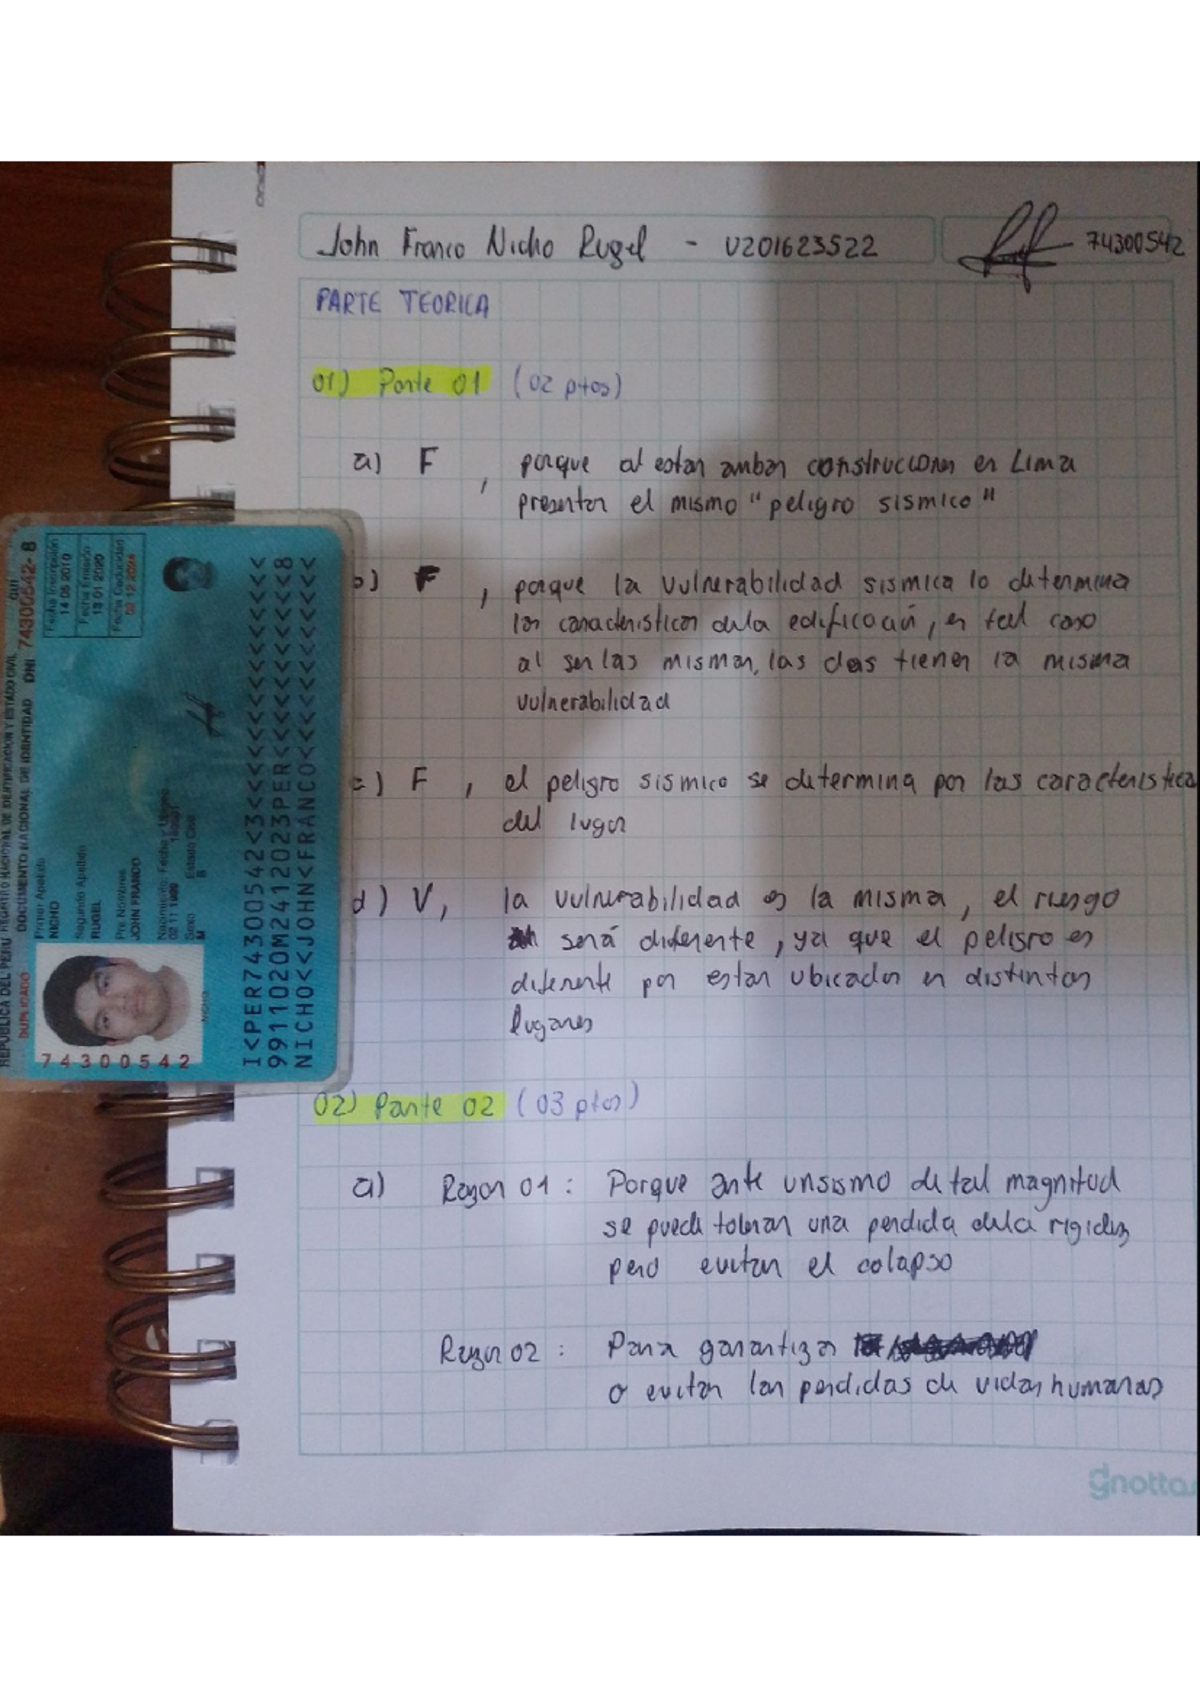 John Franco Nicho Rugel - U201623522
74300542
PARTE TEORICA
01) Parte 01 (02 ptos)
a) F , porque al estar ambas construcciones en Lima
presentan el mismo "peligro sismico"
b) F , porque la vulnerabilidad sismica lo determina
las caracteristicas de la edificación, en tal caso
al ser las mismas, las dos tienen la misma
vulnerabilidad
c) F , el peligro sismico se determina por las caracteristica
del lugar
d) V, la vulnerabilidad es la misma, el riesgo
será diferente, ya que el peligro es
diferente por estar ubicados en distintos
lugares
02) Parte 02 (03 ptos)
a) Razon 01 : Porque ante un sismo de tal magnitud
se puede tolerar una perdida de la rigidez
pero evitar el colapso
Razon 02 : Para garantizar
o evitar las perdidas de vidas humanas
gnotta
REPUBLICA DEL PERU REGISTRO NACIONAL DE IDENTIFICACION Y ESTADO CIVIL
DUPLICADO DOCUMENTO NACIONAL DE IDENTIDAD DNI 74300542-8
CUI
Primer Apellido
NICHO
Segundo Apellido
RUGEL
Pre Nombres
JOHN FRANCO
Nacimiento: Fecha y Ubigeo
02 11 1999
Sexo Estado Civil
M S
Fecha Inscripción
14 05 2010
Fecha Emisión
13 01 2020
Fecha Caducidad
02 12 2024
74300542
I<PER74300542<3<<<<<<<<<<<<<<<
9911020M2412023PER<<<<<<<<<<<8
NICHO<<JOHN<FRANCO<<<<<<<<<<<<